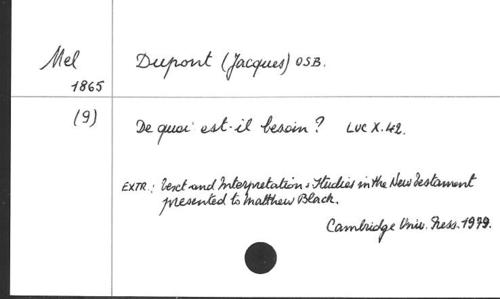 Mel
1865
(9)
Dupont (Jacques) OSB.
De quoi est-il besoin? LUC X.42.
EXTR.: Text and Interpretation: Studies in the New Testament
presented to Matthew Black.
Cambridge Univ. Press. 1979.